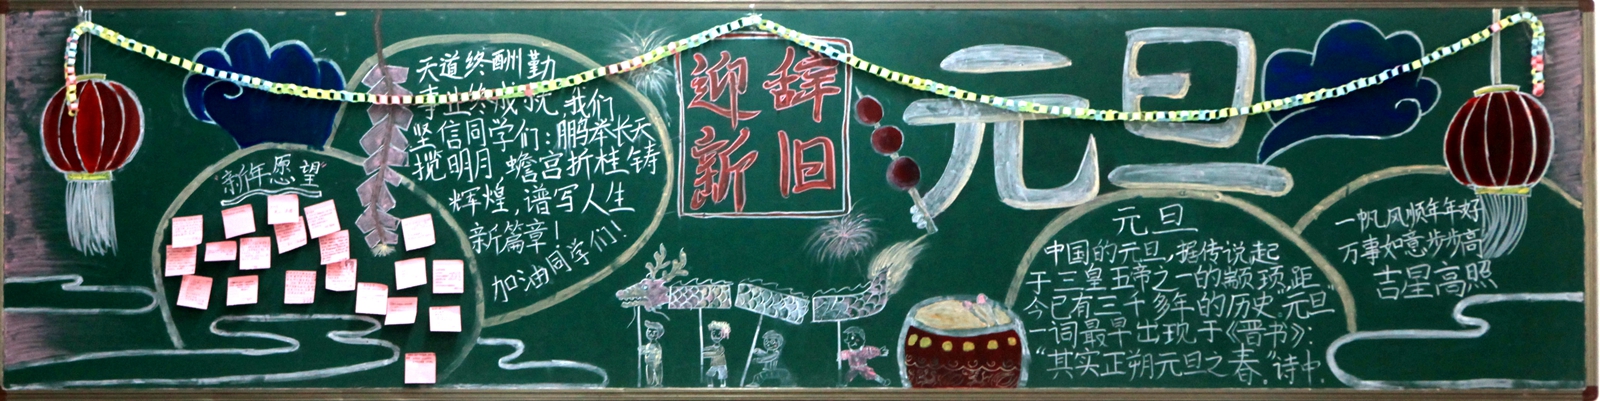 "新年愿望"
天道终酬勤
事业终成就,我们
坚信同学们:鹏举长天
揽明月,蟾宫折桂铸
辉煌,谱写人生
新篇章!
加油同学们!
迎辞
新旧
元旦
元旦
中国的元旦,据传说起
于三皇五帝之一的颛顼,距
今已有三千多年的历史"元旦"
一词最早出现于《晋书》:
"其实正朔元旦之春"诗中。
一帆风顺年年好
万事如意步步高
吉星高照